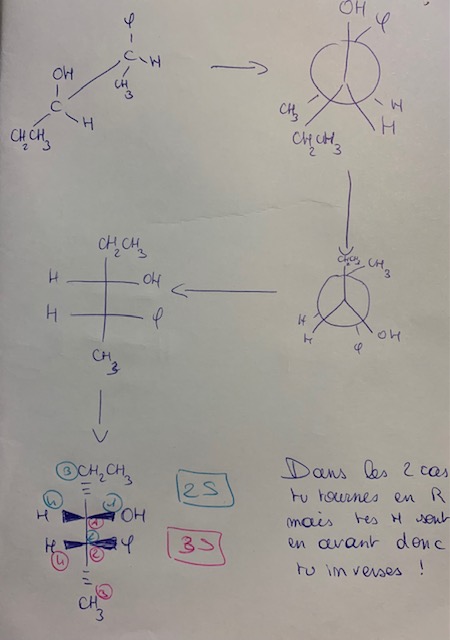 OH
φ
φ
C
H
OH
CH3
C
CH3
H
H
CH2CH3
H
CH2CH3
CH2CH3
CH2CH3
CH3
H
OH
H
φ
H
H
OH
φ
CH3
3 CH2CH3
2S
4
1
H
OH
1
2
H
φ
4
2
3S
CH3 3
Dans les 2 cas
tu tournes en R
mais tes H sont
en avant donc
tu inverses !